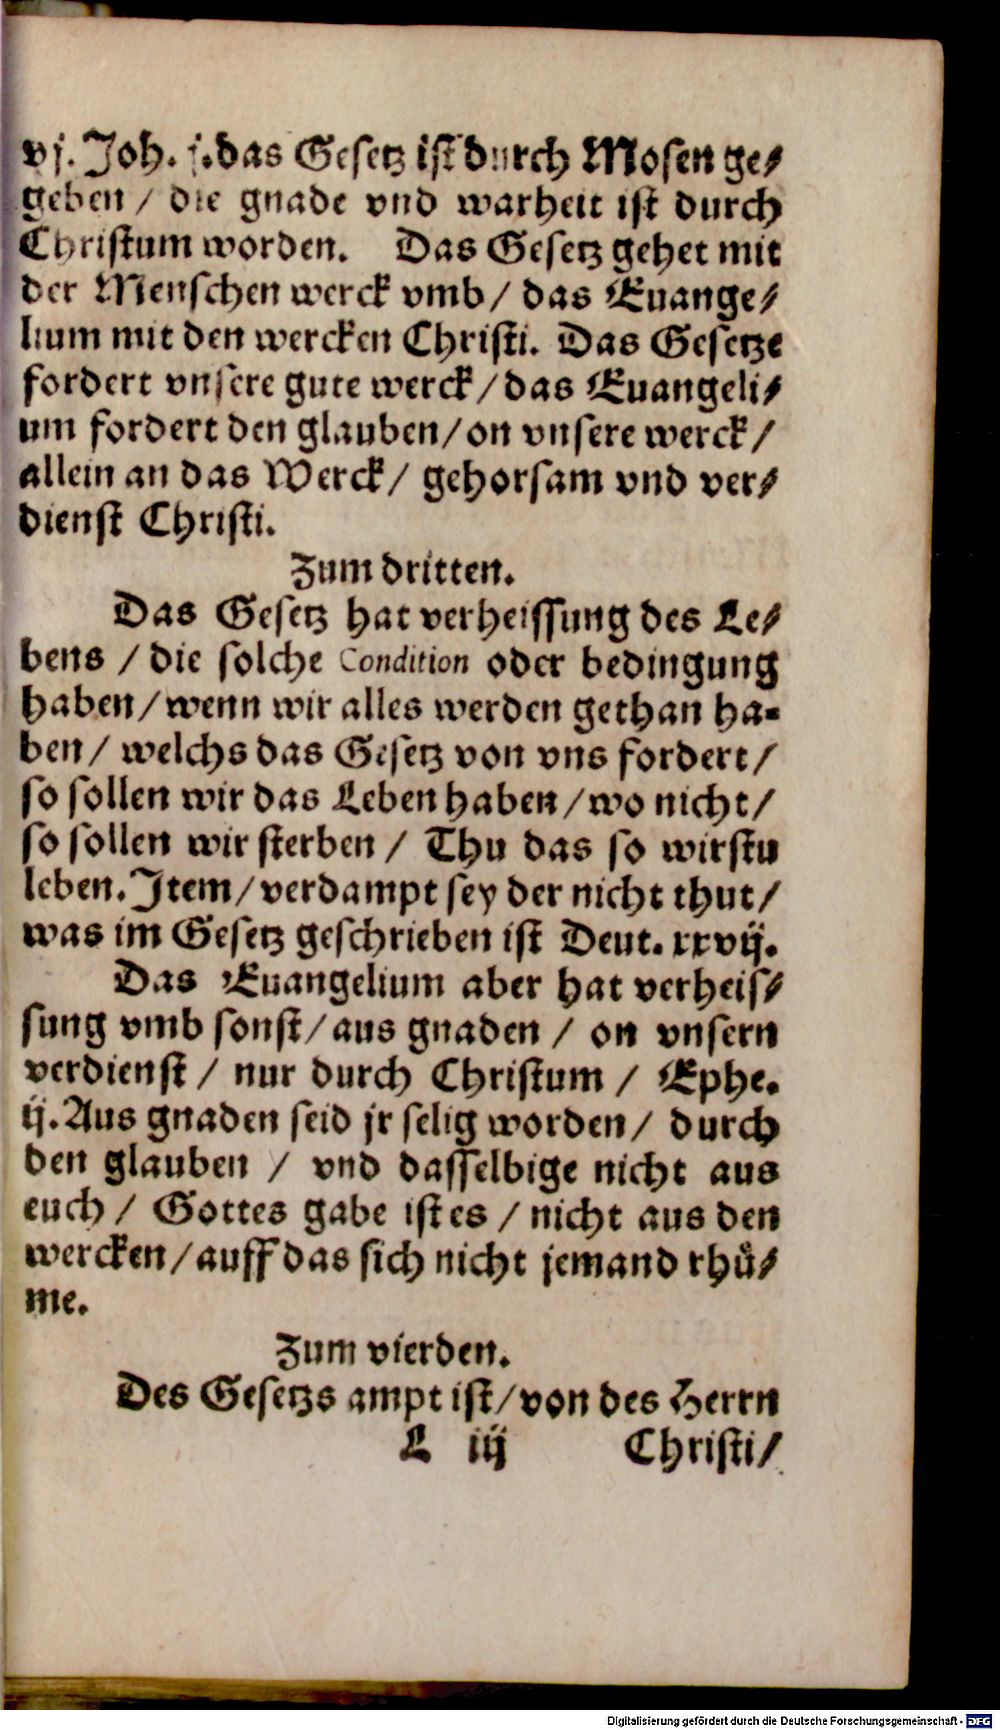 vj. Joh. j. das Gesetz ist durch Mosen ge⸗
geben / die gnade vnd warheit ist durch
Christum worden. Das Gesetz gehet mit
der Menschen werck vmb / das Euange⸗
lium mit den wercken Christi. Das Gesetze
fordert vnsere gute werck / das Euangeli⸗
um fordert den glauben / on vnsere werck /
allein an das Werck / gehorsam vnd ver⸗
dienst Christi.
Zum dritten.
Das Gesetz hat verheissung des Le⸗
bens / die solche Condition oder bedingung
haben / wenn wir alles werden gethan ha⸗
ben / welchs das Gesetz von vns fordert /
so sollen wir das Leben haben / wo nicht /
so sollen wir sterben / Thu das so wirstu
leben. Item / verdampt sey der nicht thut /
was im Gesetz geschrieben ist Deut. xxvij.
Das Euangelium aber hat verheis⸗
sung vmb sonst / aus gnaden / on vnsern
verdienst / nur durch Christum / Ephe.
ij. Aus gnaden seid jr selig worden / durch
den glauben / vnd dasselbige nicht aus
euch / Gottes gabe ist es / nicht aus den
wercken / auff das sich nicht jemand rhuͤ⸗
me.
Zum vierden.
Des Gesetzs ampt ist / von des Herrn
L iij Christi /
Digitalisierung gefördert durch die Deutsche Forschungsgemeinschaft - DFG